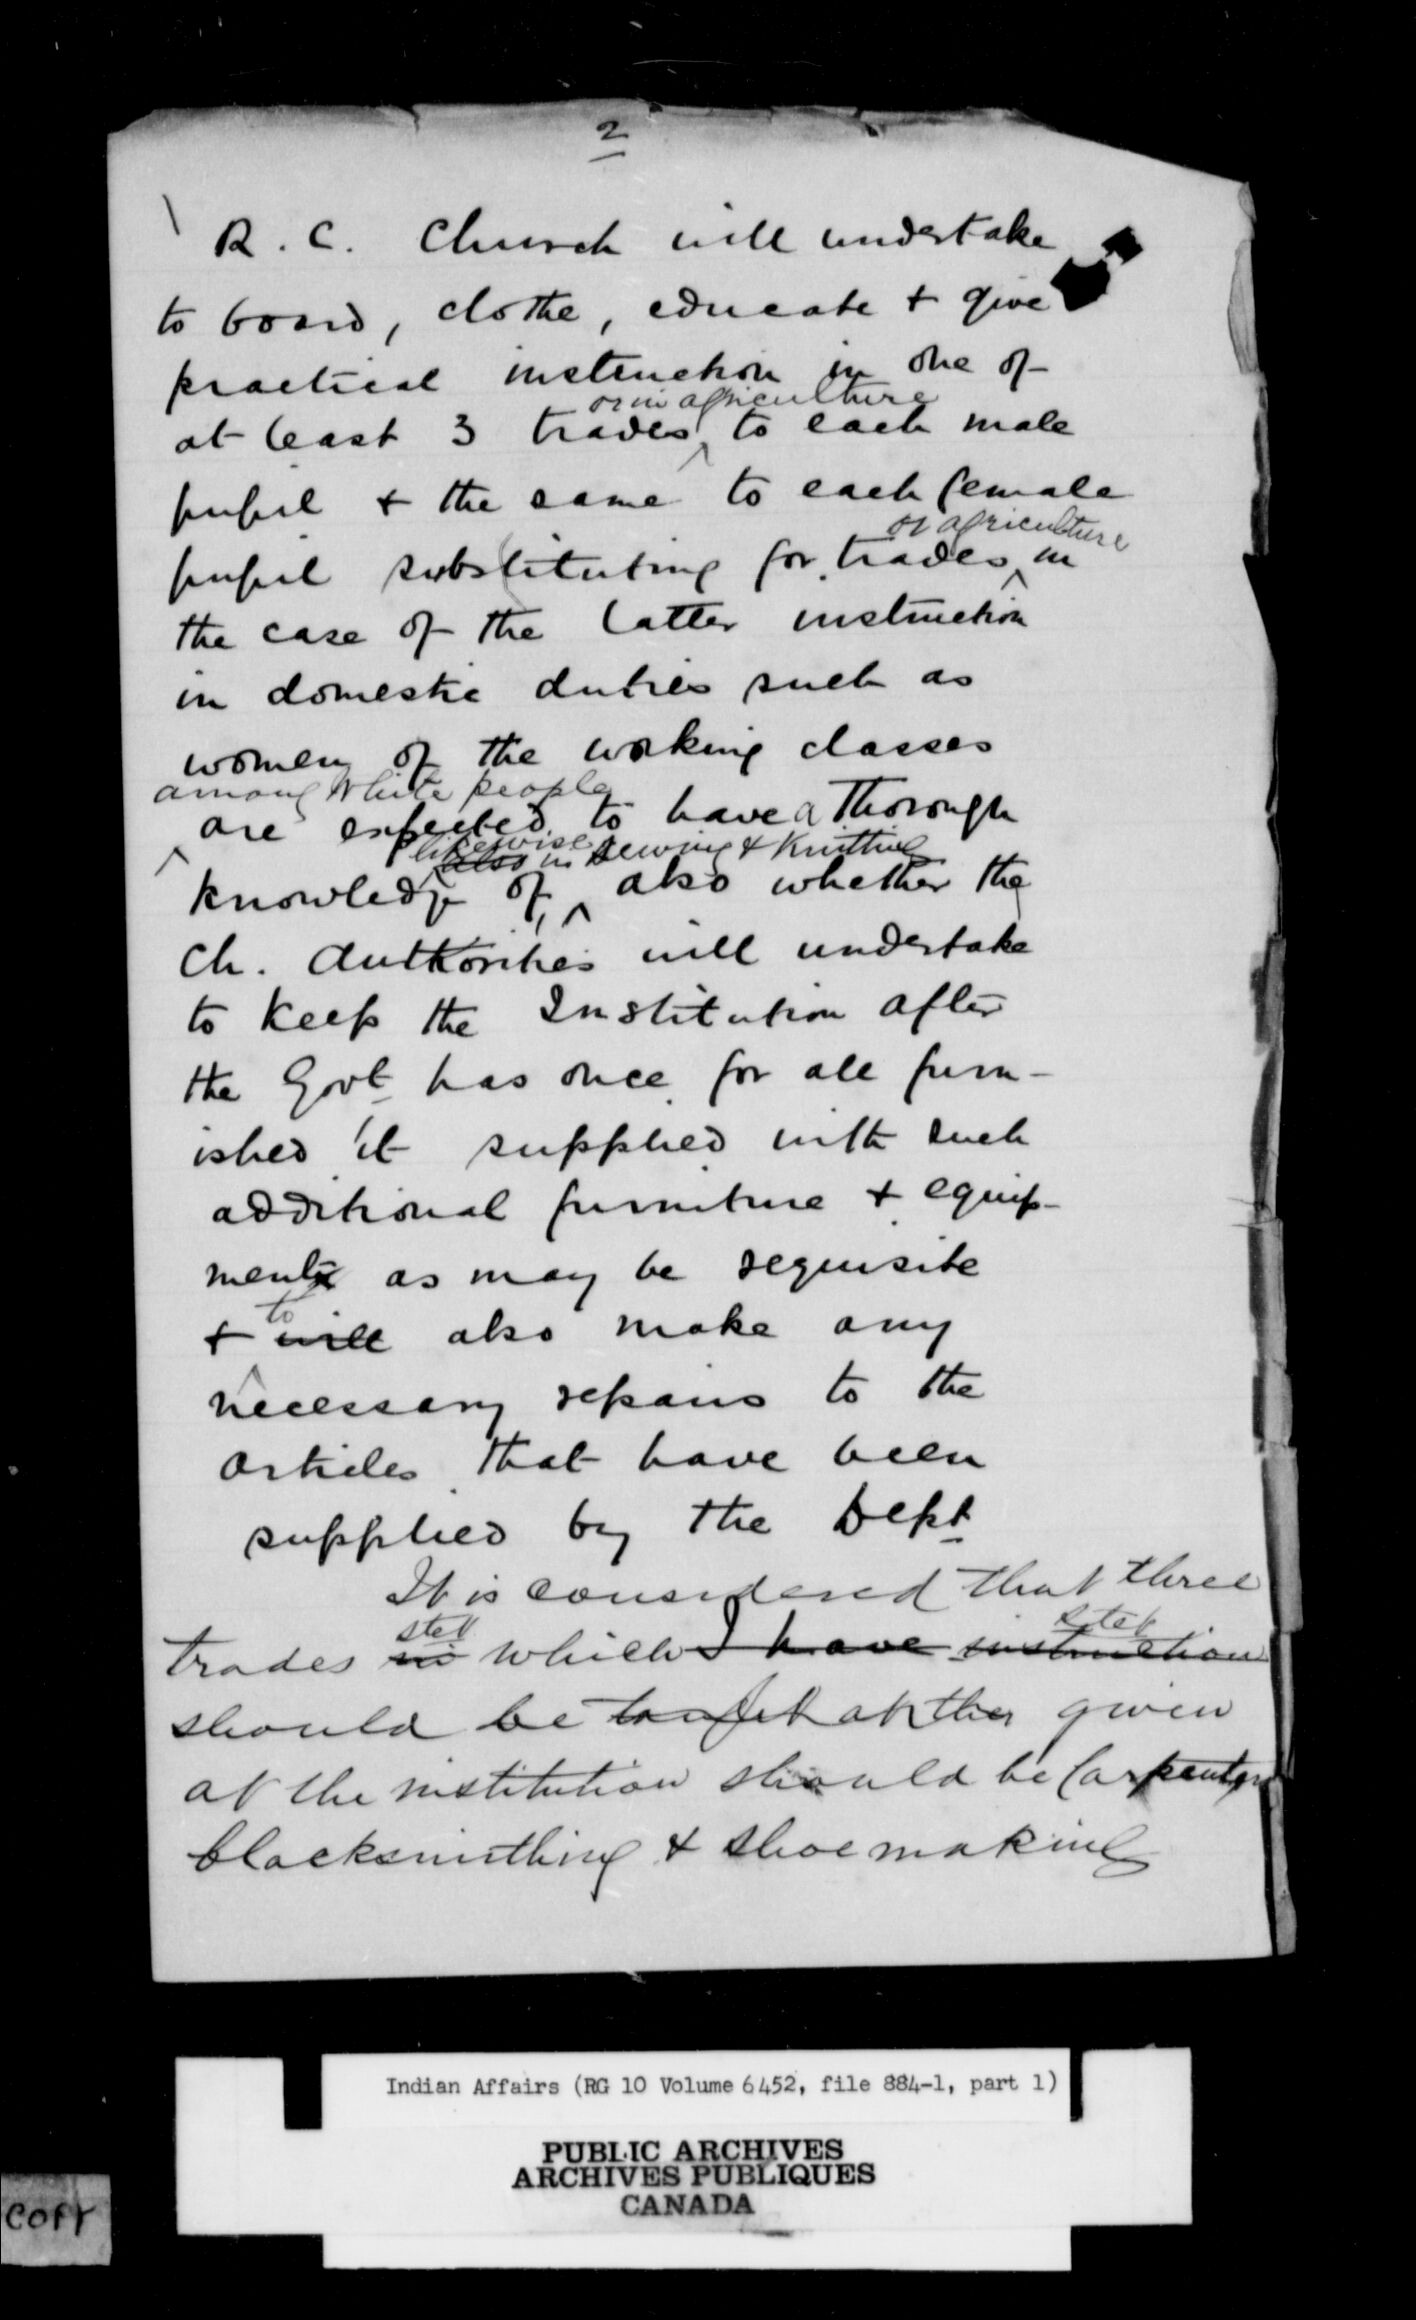 2
R. C. Church will undertake
to board, clothe, educate + give
practical instruction in one of
or in agriculture
at least 3 trades to each male
pupil + the same to each female
or agriculture
pupil substituting for trades in
the case of the latter instruction
in domestic duties such as
women of the working classes
among White people
are expected to have a thorough
likewise also in sewing & Knitting
knowledge of, also whether the
Ch. Authorities will undertake
to keep the Institution after
the Govt has once for all furn-
ished it supplied with such
additional furniture + equip-
ment as may be requisite
to
+ will also make any
necessary repairs to the
articles that have been
supplied by the Dept
It is considered that three
stet stet
trades in which I have instruction
should be taught at the given
at the institution should be Carpentry
blacksmithing & shoemaking
Indian Affairs (RG 10 Volume 6452, file 884-1, part 1)
PUBLIC ARCHIVES
ARCHIVES PUBLIQUES
CANADA
COPY